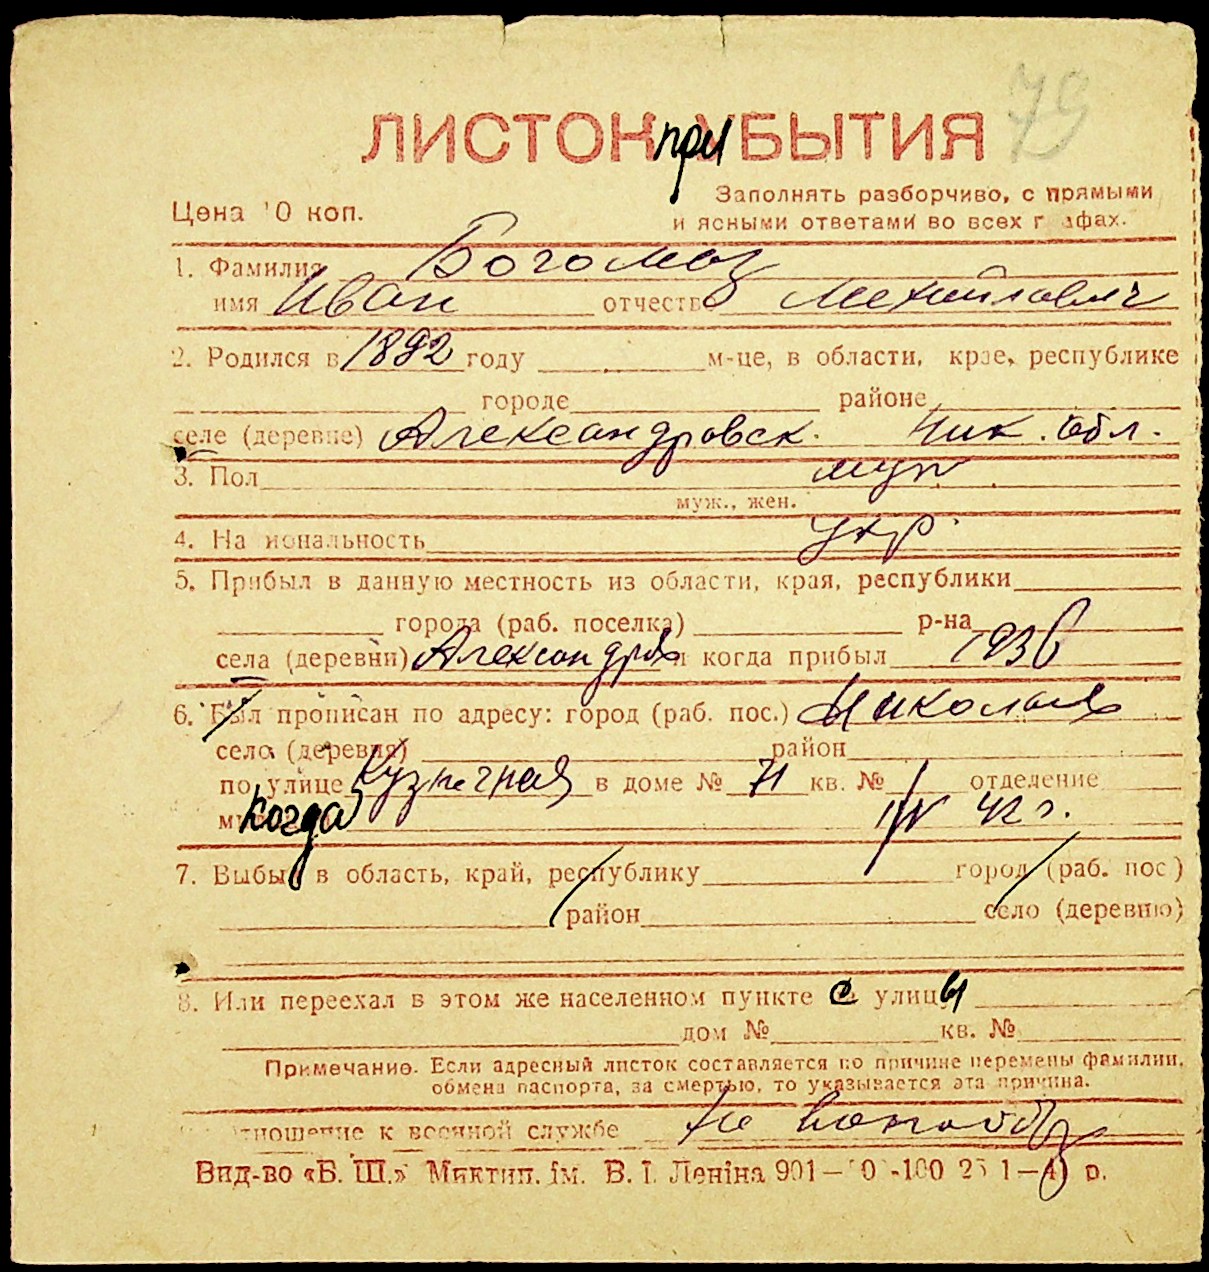 79
ЛИСТОК при БЫТИЯ
Цена 10 коп.
Заполнять разборчиво, с прямыми
и ясными ответами во всех графах.
1. Фамилия Богомаз
имя Иван отчество Михайлович
2. Родился в 1892 году м-це, в области, крае, республике
городе районе
селе (деревне) Александровск. Ник. обл.
3. Пол муж
муж., жен.
4. Национальность укр.
5. Прибыл в данную местность из области, края, республики
города (раб. поселка) р-на
села (деревни) Александров и когда прибыл 1936
6. Был прописан по адресу: город (раб. пос.) Николаев
село (деревня) район
по улице Кузнечная в доме № 71 кв. № 1 отделение
когда IV 42 г.
7. Выбыл в область, край, республику город (раб. пос)
район село (деревню)
8. Или переехал в этом же населенном пункте с улицы
дом № кв. №
Примечание. Если адресный листок составляется по причине перемены фамилии,
обмена паспорта, за смертью, то указывается эта причина.
Отношение к военной службе не
Вид-во «Б. Ш.» Миктип. ім. В. І. Леніна 901